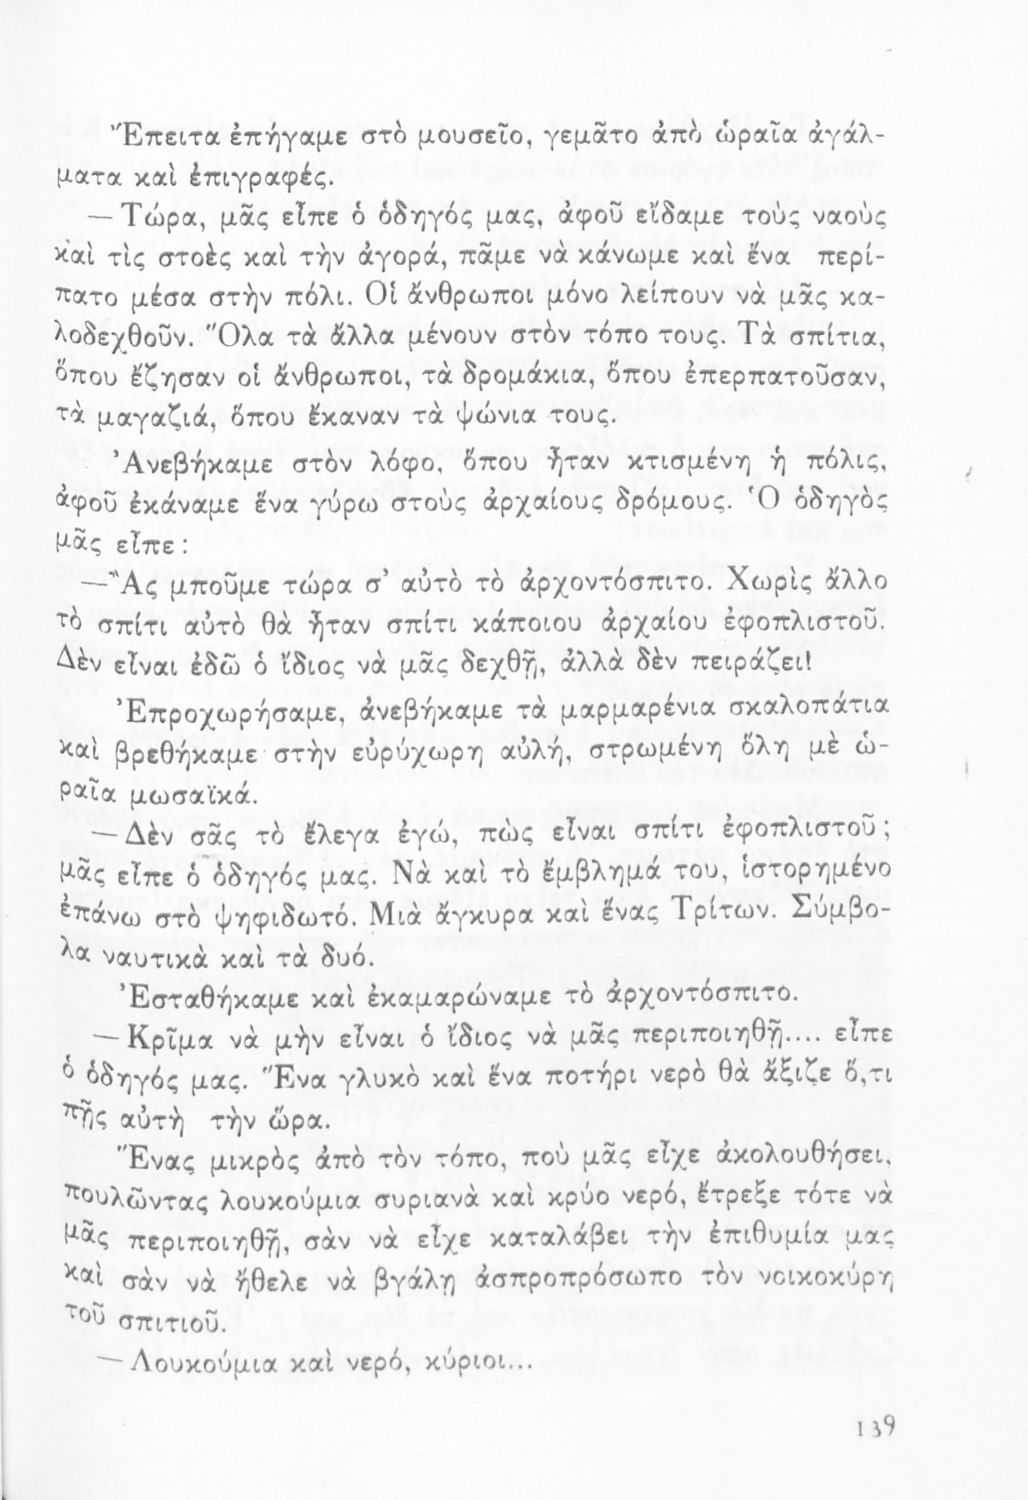 Ἔπειτα ἐπήγαμε στὸ μουσεῖο, γεμᾶτο ἀπὸ ὡραῖα ἀγάλ-
ματα καὶ ἐπιγραφές.
— Τώρα, μᾶς εἶπε ὁ ὁδηγός μας, ἀφοῦ εἴδαμε τοὺς ναοὺς
καὶ τὶς στοὲς καὶ τὴν ἀγορά, πᾶμε νὰ κάνωμε καὶ ἕνα περί-
πατο μέσα στὴν πόλι. Οἱ ἄνθρωποι μόνο λείπουν νὰ μᾶς κα-
λοδεχθοῦν. Ὅλα τὰ ἄλλα μένουν στὸν τόπο τους. Τὰ σπίτια,
ὅπου ἔζησαν οἱ ἄνθρωποι, τὰ δρομάκια, ὅπου ἐπερπατοῦσαν,
τὰ μαγαζιά, ὅπου ἔκαναν τὰ ψώνια τους.
Ἀνεβήκαμε στὸν λόφο, ὅπου ἦταν κτισμένη ἡ πόλις,
ἀφοῦ ἐκάναμε ἕνα γύρω στοὺς ἀρχαίους δρόμους. Ὁ ὁδηγὸς
μᾶς εἶπε :
— Ἂς μποῦμε τώρα σ’ αὐτὸ τὸ ἀρχοντόσπιτο. Χωρὶς ἄλλο
τὸ σπίτι αὐτὸ θὰ ἦταν σπίτι κάποιου ἀρχαίου ἐφοπλιστοῦ.
Δὲν εἶναι ἐδῶ ὁ ἴδιος νὰ μᾶς δεχθῇ, ἀλλὰ δὲν πειράζει!
Ἐπροχωρήσαμε, ἀνεβήκαμε τὰ μαρμαρένια σκαλοπάτια
καὶ βρεθήκαμε στὴν εὐρύχωρη αὐλή, στρωμένη ὅλη μὲ ὡ-
ραῖα μωσαϊκά.
— Δὲν σᾶς τὸ ἔλεγα ἐγώ, πὼς εἶναι σπίτι ἐφοπλιστοῦ;
μᾶς εἶπε ὁ ὁδηγός μας. Νὰ καὶ τὸ ἔμβλημά του, ἱστορημένο
ἐπάνω στὸ ψηφιδωτό. Μιὰ ἄγκυρα καὶ ἕνας Τρίτων. Σύμβο-
λα ναυτικὰ καὶ τὰ δυό.
Ἐσταθήκαμε καὶ ἐκαμαρώναμε τὸ ἀρχοντόσπιτο.
— Κρῖμα νὰ μὴν εἶναι ὁ ἴδιος νὰ μᾶς περιποιηθῇ.... εἶπε
ὁ ὁδηγός μας. Ἕνα γλυκὸ καὶ ἕνα ποτήρι νερὸ θὰ ἄξιζε ὅ,τι
πῇς αὐτὴ τὴν ὥρα.
Ἕνας μικρὸς ἀπὸ τὸν τόπο, ποὺ μᾶς εἶχε ἀκολουθήσει,
πουλῶντας λουκούμια συριανὰ καὶ κρύο νερό, ἔτρεξε τότε νὰ
μᾶς περιποιηθῇ, σὰν νὰ εἶχε καταλάβει τὴν ἐπιθυμία μας
καὶ σὰν νὰ ἤθελε νὰ βγάλῃ ἀσπροπρόσωπο τὸν νοικοκύρη
τοῦ σπιτιοῦ.
— Λουκούμια καὶ νερό, κύριοι...
139